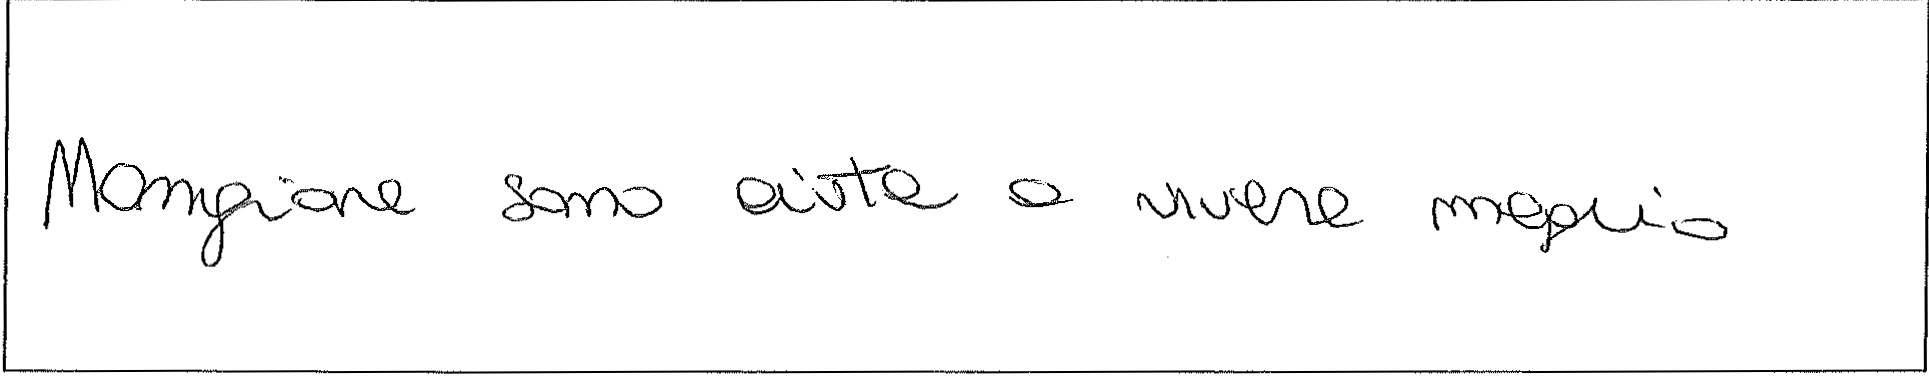 Mangiare sano aiuta a vivere meglio